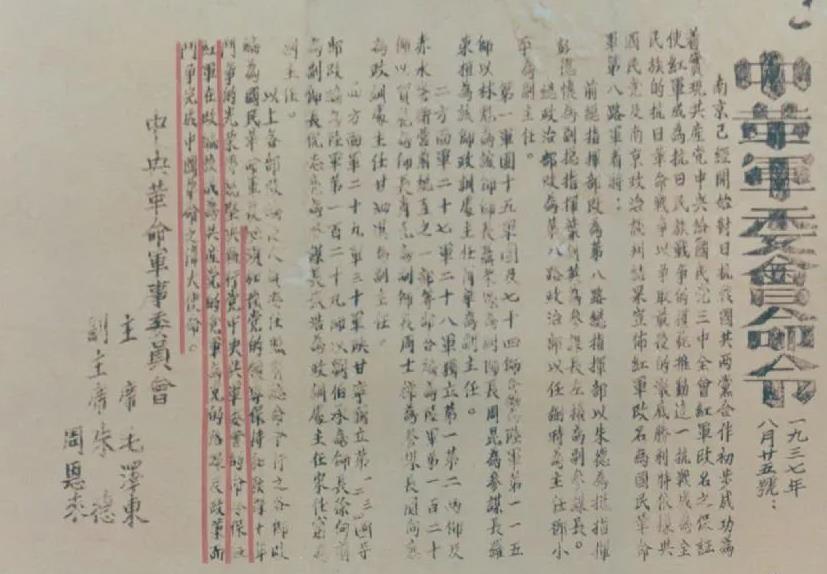 中革軍委會命令
一九三七年
八月廿五號：
南京已經開始對日抗戰國共兩黨合作初步成功為
着實現共產黨中央給國民党三中全會紅軍改名之保証
使紅軍成為抗日民族戰爭的模範推動這一抗戰成為全
民族的抗日革命戰爭以爭取最後的澈底勝利特依據共
國民党及南京政治談判結果宣佈紅軍改名為國民革命
軍第八路軍着將：
前總指揮部改為第八路總指揮部以朱德為總指揮
彭德懷為副總指揮葉劍英為參謀長左權為副參謀長。
總政治部改為第八路政治部以任弼時為主任鄧小
平為副主任。
第一軍團十五軍團及七十四師合編為陸軍第一一五
師以林彪為該師師長聶榮臻為副師長周昆為參謀長羅
榮桓為該師政訓處主任蕭華為副主任。
二方面軍二十七軍二十八軍獨立第一第二兩師及
赤水警衛營前總直之一部等部合編為陸軍第一百二十
師以賀龍為師長蕭克為副師長周士第為參謀長關向應
為政訓處主任甘泗淇為副主任。
四方面軍二十九軍三十軍陝甘寧獨立第一二三四等
部改編為陸軍第一百二十九師以劉伯承為師長徐向前
為副師長倪志亮為參謀長張浩為政訓處主任宋任窮為
副主任。
以上各部改編後人員委任照前總命令行之各師改
編為國民革命軍後必須加強党的領導保持紅軍十年
鬥爭的光榮傳統堅決執行党中央與軍委會的命令保証
紅軍在改編後成為共產党的党軍為党的路線及政策而
鬥爭完成中國革命之偉大使命。
中央革命軍事委員會
主席毛澤東
副主席朱德
周恩來